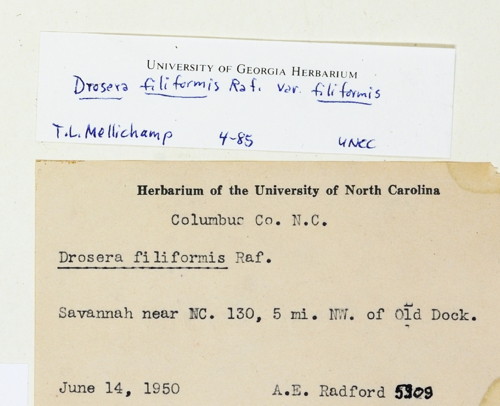 University of Georgia Herbarium
Drosera filiformis Raf. var. filiformis
T.L. Mellichamp 4-85 UNCC
Herbarium of the University of North Carolina
Columbus Co. N.C.
Drosera filiformis Raf.
Savannah near NC. 130, 5 mi. NW. of Old Dock.
June 14, 1950 A.E. Radford 5309